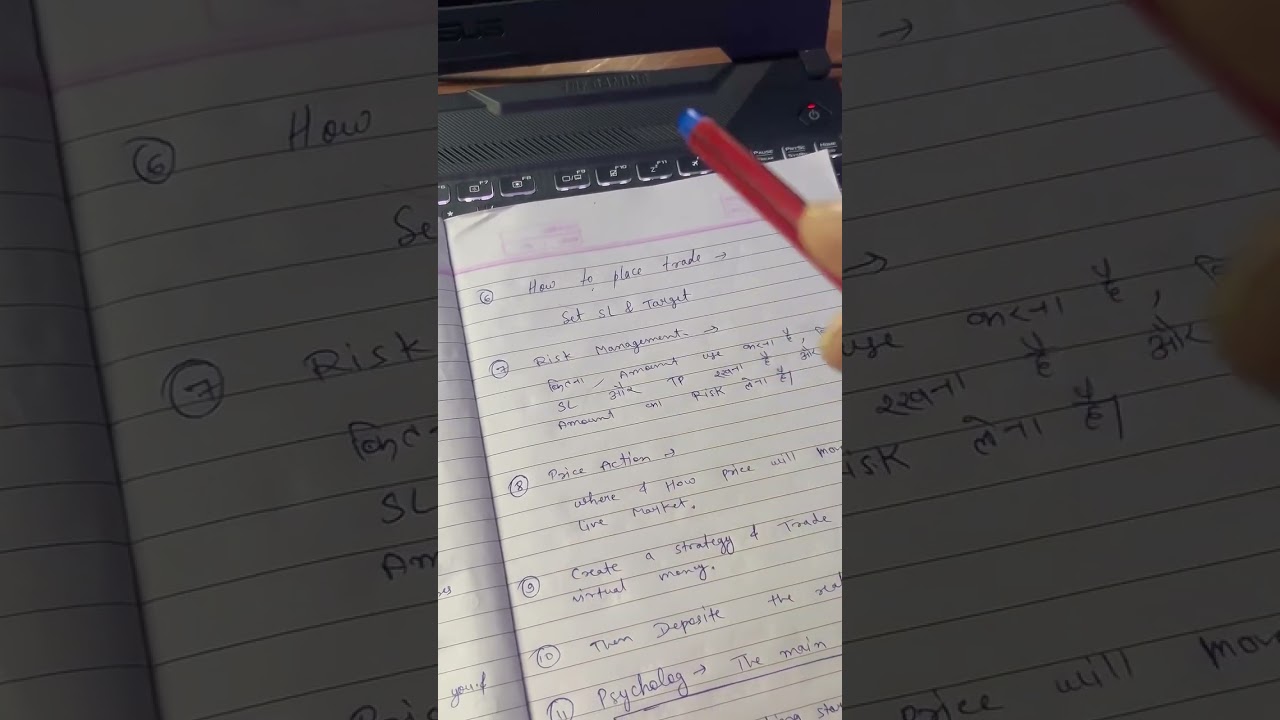 ⑥ How to place trade →
Set SL & Target
⑦ Risk Management →
कितना Amount use करना है,
SL और TP रखना है और
Amount का Risk लेना है|
⑧ Price Action →
where & How price will mov
live Market.
⑨ Create a strategy & Trade
virtual money.
⑩ Then Deposite the real
⑪ Psycholog → The main
you.f